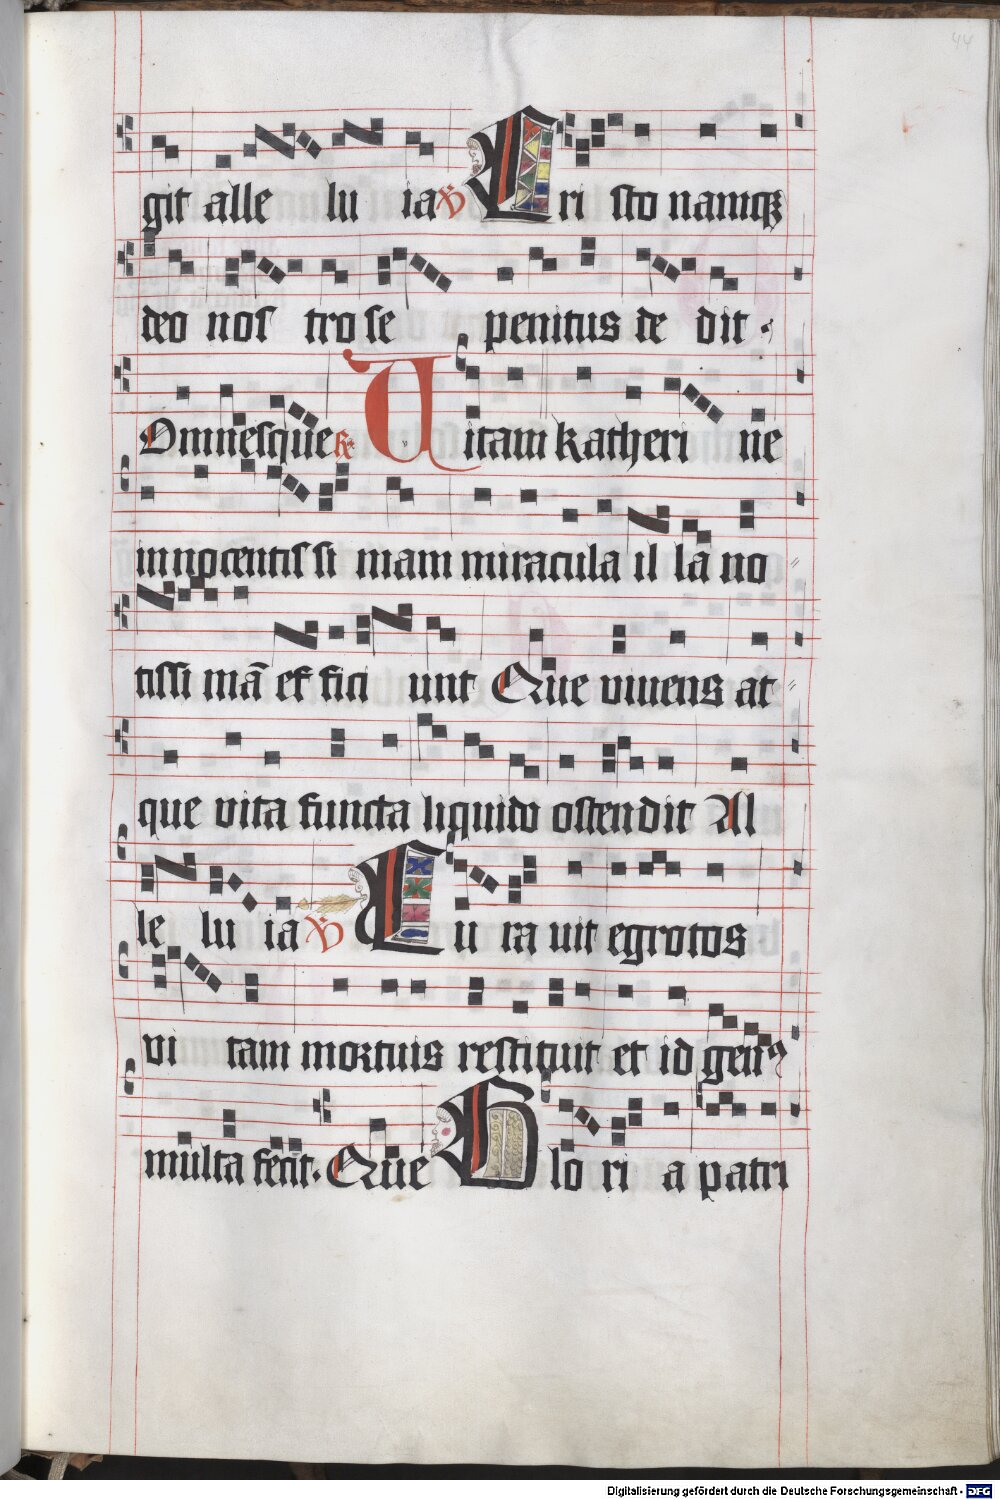 44
git alle lu ia ℣ Cri sto namqꝫ
deo nos tro se penitus de dit ·
Omnesque ℟ Uitam Katheri ne
innocentis si mam miracula il la no
tissi mā ef fici unt Que viuens at
que vita functa liquido ostendit Al
le lu ia ℣ Cu ra uit egrotos
vi tam mortuis restituit et id genꝰ
multa fecit. Que Glo ri a patri
Digitalisierung gefördert durch die Deutsche Forschungsgemeinschaft - DFG